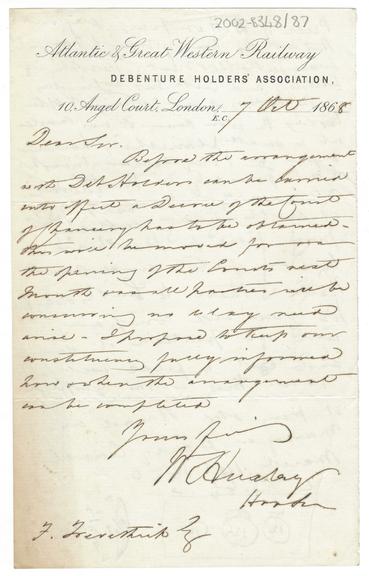 2002-8348/87
Atlantic & Great Western Railway
DEBENTURE HOLDERS' ASSOCIATION,
10, Angel Court, London,
E.C. 7 Oct 1868
Dear Sir.
Before the arrangement
with Deb Holders can be carried
into effect a Decree of the Court
of Chancery has to be obtained -
this will be moved for on
the opening of the Courts next
Month & as all parties will be
concurring no delay need
arise - I propose to keep our
constituency fully informed
how & when the arrangement
can be completed
Yours
W
F. Trevithick Esq